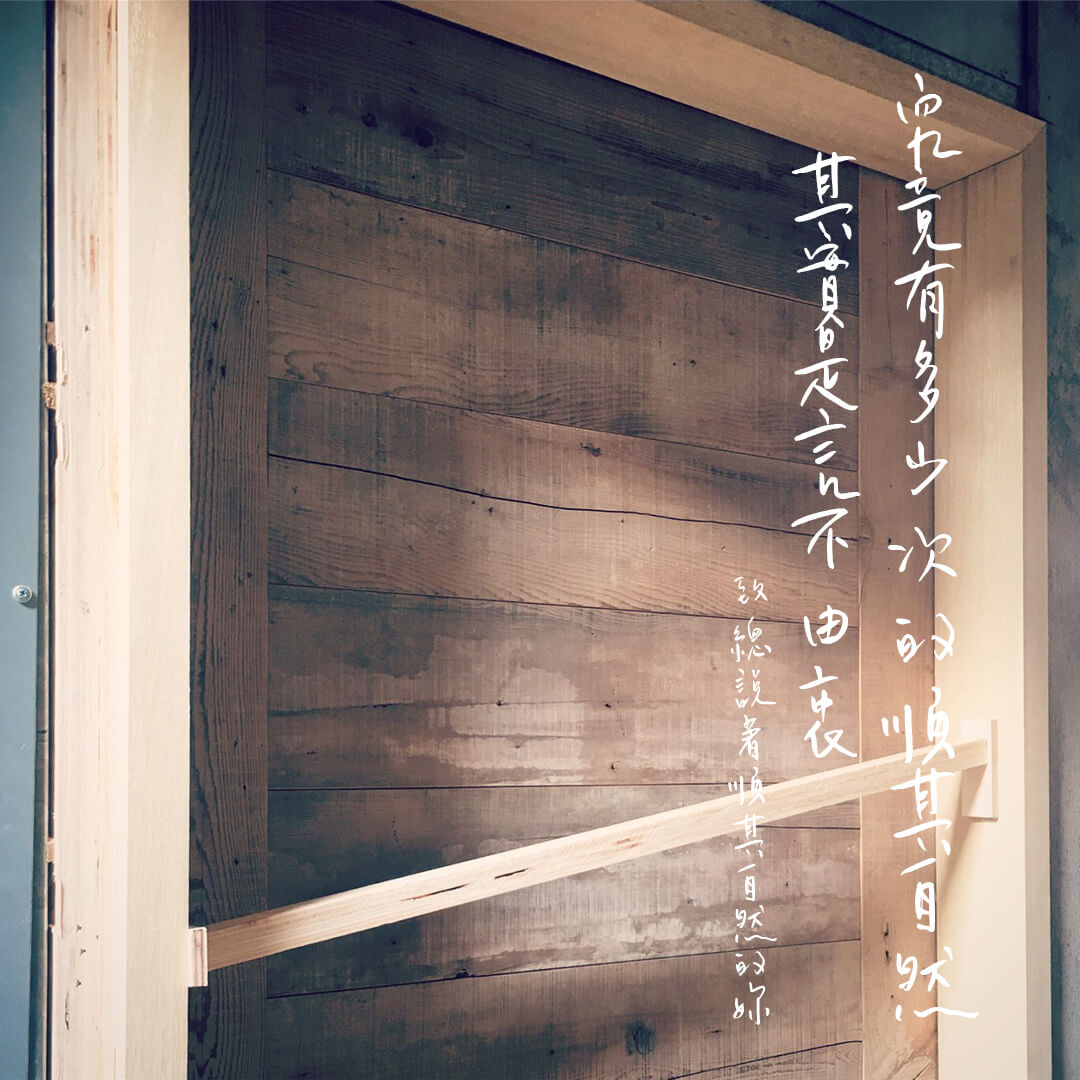 究竟有多少次的順其自然
其實是言不由衷
致總說著順其自然的妳